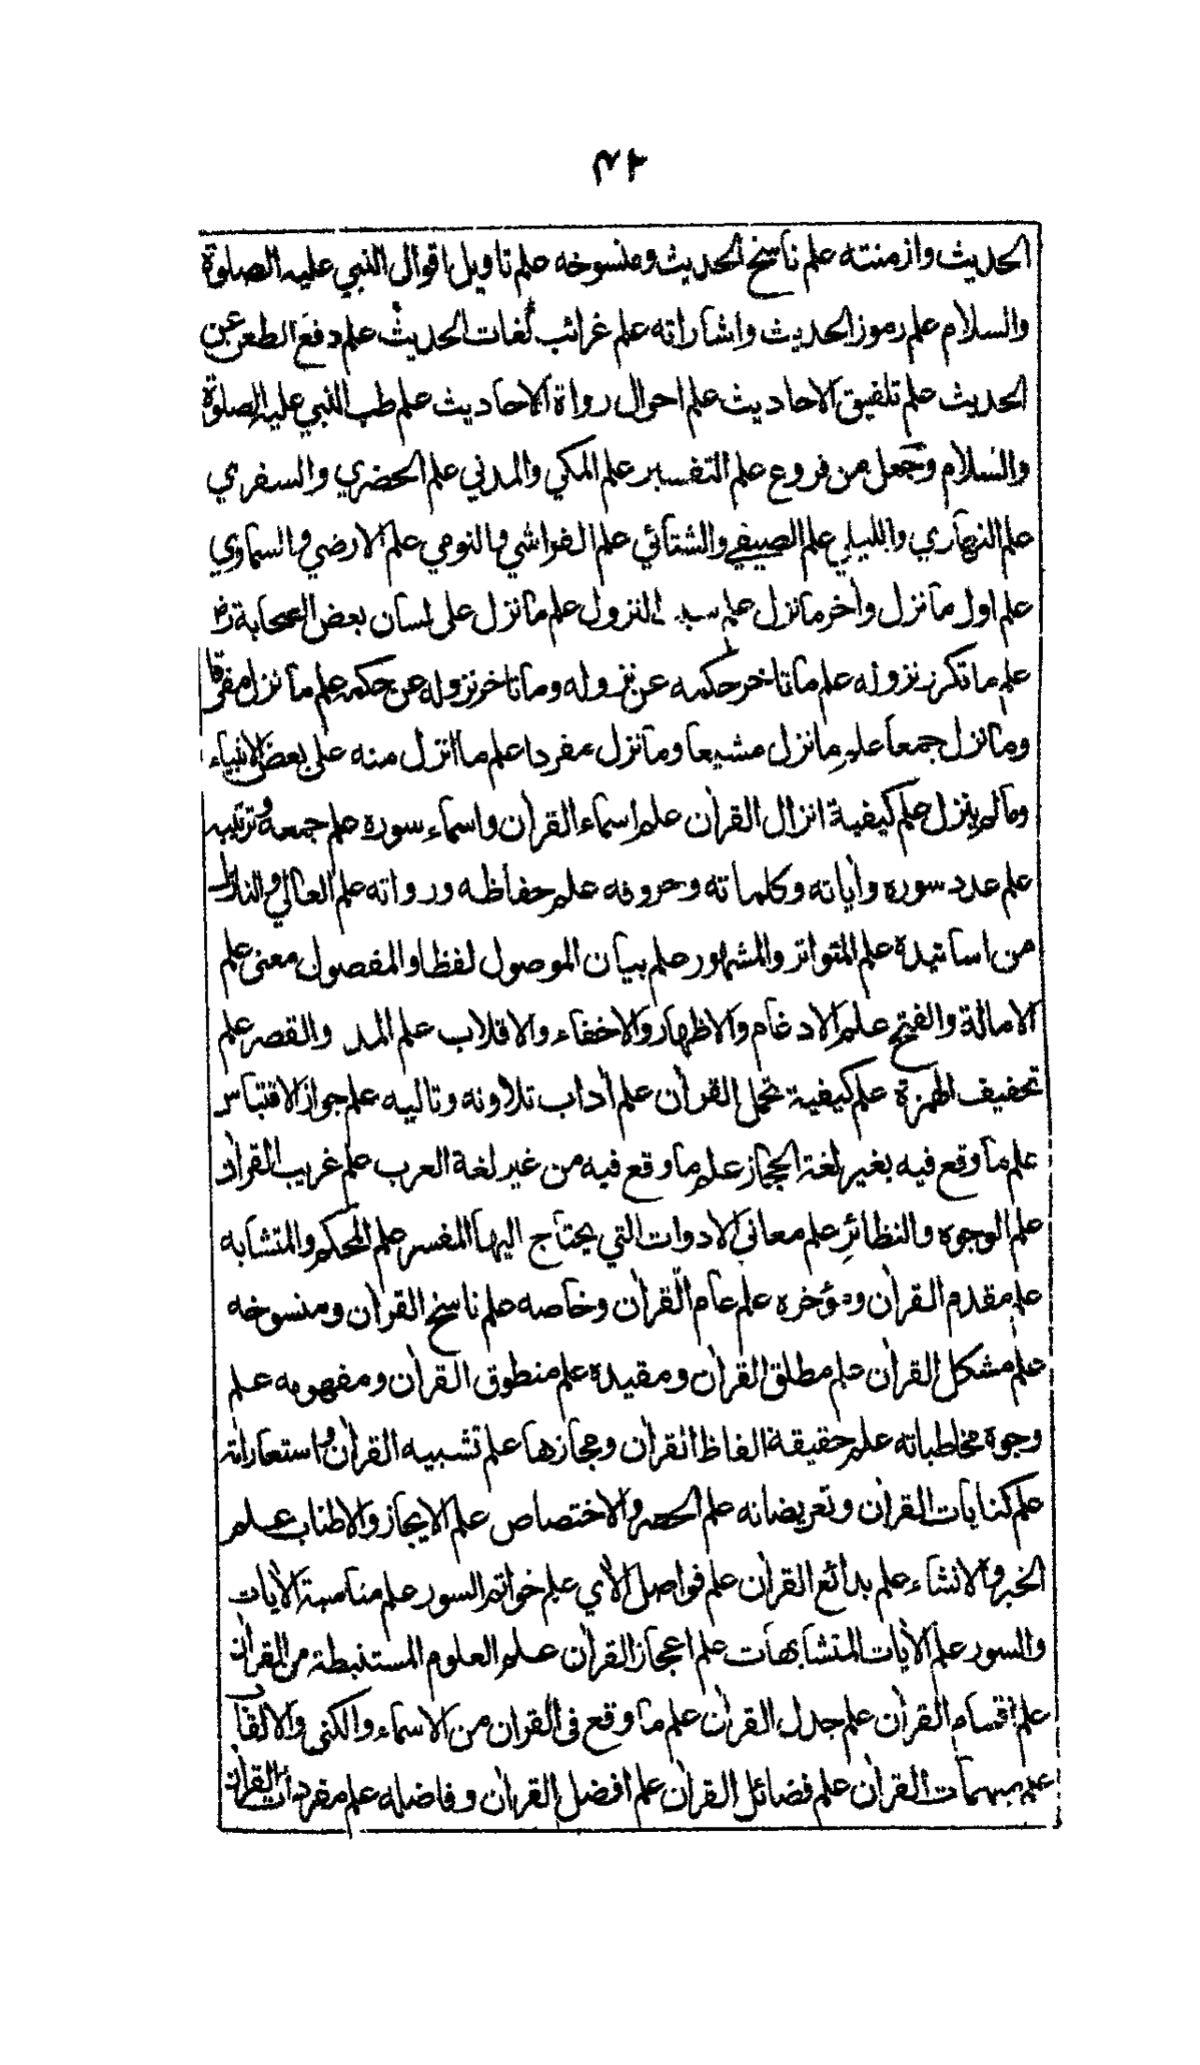 ٤٢
الحديث وازمنته علم ناسخ الحديث ومنسوخه علم تاويل اقوال النبي عليه الصلوة
والسلام علم رموز الحديث واشاراته علم غرائب لغات الحديث علم دفع الطعن عن
الحديث علم تلفيق الاحاديث علم احوال رواة الاحاديث علم طب النبي عليه الصلوة
والسلام وجعل من فروع علم التفسير علم المكي والمدني علم الحضري والسفري
علم النهاري والليلي علم الصيفي والشتائي علم الفراشي والنومي علم الارضي والسماوي
علم اول ما نزل واخر ما نزل علم سبب النزول علم ما نزل على لسان بعض الصحابة رض
علم ما تكرر نزوله علم ما تاخر حكمه عن نزوله وما تاخر نزوله عن حكمه علم ما نزل مفرقا
وما نزل جمعا علم ما نزل مشيعا وما نزل مفردا علم ما انزل منه على بعض الانبياء
وما لم ينزل علم كيفية انزال القرأن علم اسماء القرأن واسماء سوره علم جمعه وترتيبه
علم عدد سوره وأياته وكلماته وحروفه علم حفاظه ورواته علم العالي والنازل
من اسانيده علم المتواتر والمشهور علم بيان الموصول لفظا والمفصول معنى علم
الامالة والفتح علم الادغام والاظهار والاخفاء والاقلاب علم المد والقصر علم
تخفيف الهمزة علم كيفية تحمل القرأن علم أداب تلاوته وتاليه علم جواز الاقتباس
علم ما وقع فيه بغير لغة الحجاز علم ما وقع فيه من غير لغة العرب علم غريب القرأن
علم الوجوه والنظائر علم معاني الادوات التي يحتاج اليها المفسر علم المحكم والمتشابه
علم مقدم القرأن ومؤخره علم عام القرأن وخاصه علم ناسخ القرأن ومنسوخه
علم مشكل القرأن علم مطلق القرأن ومقيده علم منطوق القرأن ومفهومه علم
وجوه مخاطباته علم حقيقة الفاظ القرأن ومجازها علم تشبيه القرأن واستعاراته
علم كنايات القرأن وتعريضاته علم الحصر والاختصاص علم الايجاز والاطناب علم
الخبر والانشاء علم بدائع القرأن علم فواصل الأي علم خواتم السور علم مناسبة الأيات
والسور علم الأيات المتشابهات علم اعجاز القرأن علم العلوم المستنبطة من القرأن
علم اقسام القرأن علم جدل القرأن علم ما وقع فى القرأن من الاسماء والكنى والالقاب
علم مبهمات القرأن علم فضائل القرأن علم افضل القرأن وفاضله علم مفردات القرأن